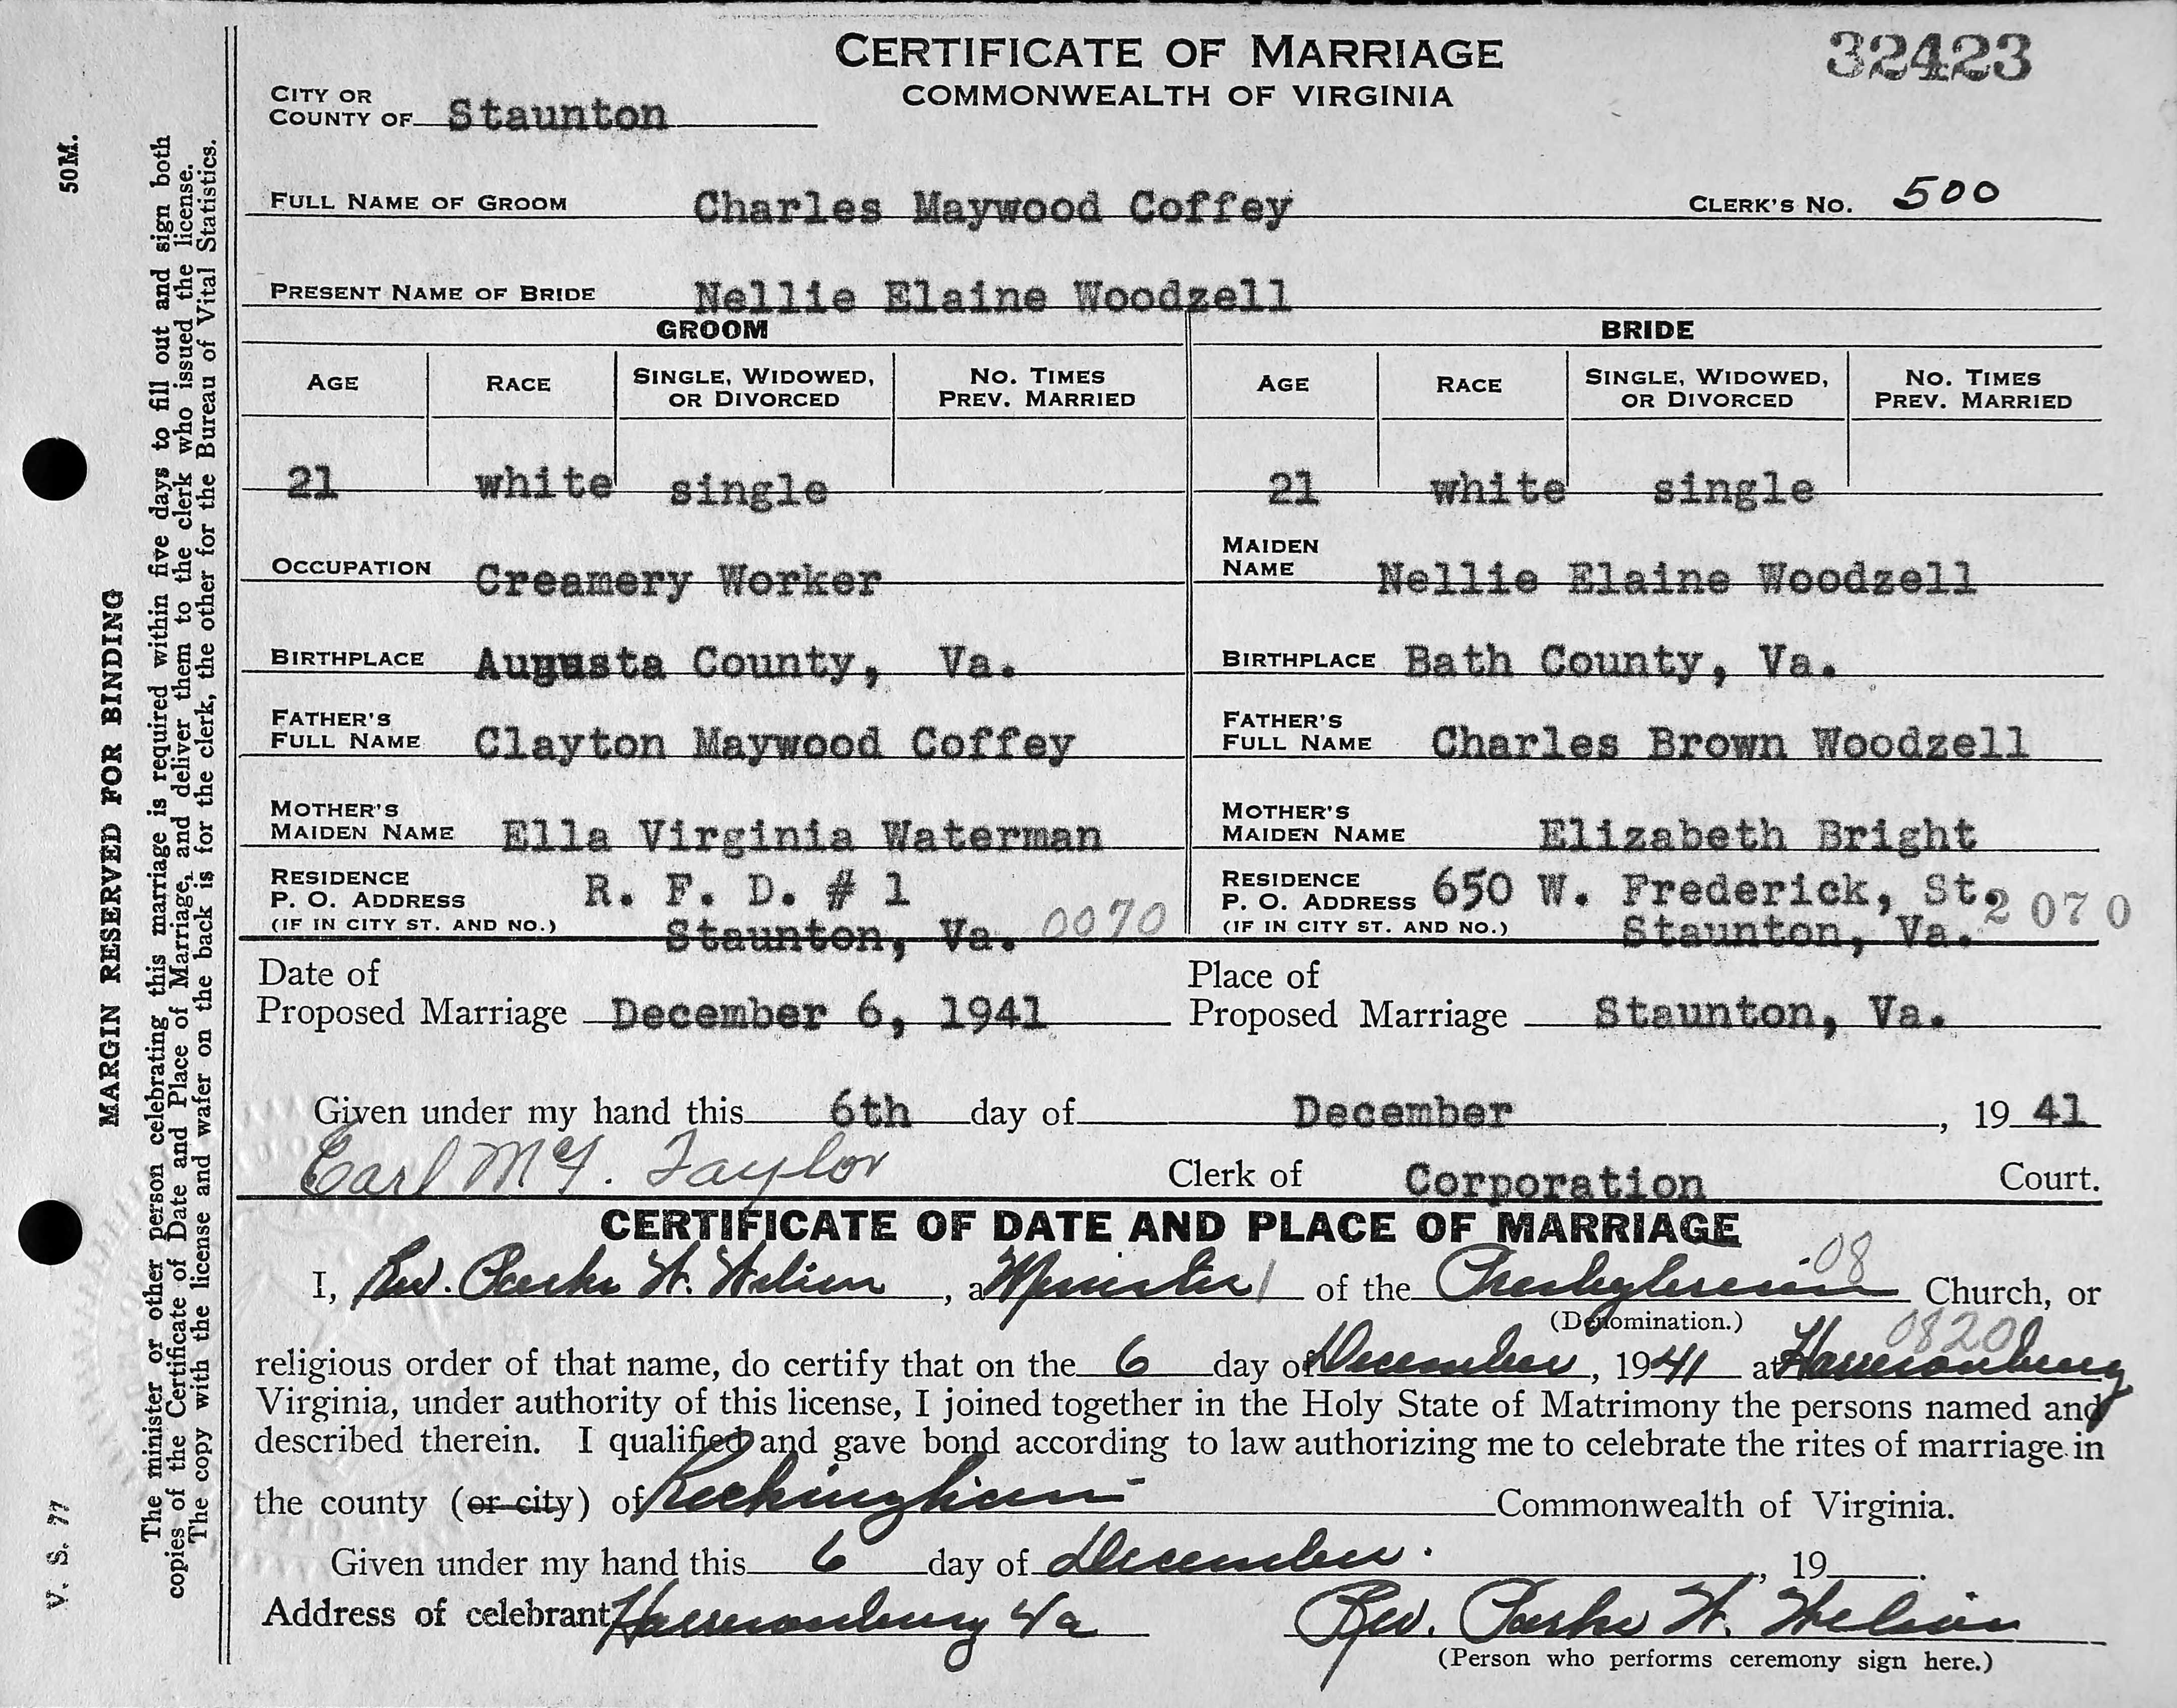 CERTIFICATE OF MARRIAGE
COMMONWEALTH OF VIRGINIA
32423
CITY OR COUNTY OF Staunton
FULL NAME OF GROOM Charles Maywood Coffey CLERK'S NO. 500
PRESENT NAME OF BRIDE Nellie Elaine Woodzell
GROOM BRIDE
AGE RACE SINGLE, WIDOWED, OR DIVORCED NO. TIMES PREV. MARRIED AGE RACE SINGLE, WIDOWED, OR DIVORCED NO. TIMES PREV. MARRIED
21 white single 21 white single
OCCUPATION Creamery Worker MAIDEN NAME Nellie Elaine Woodzell
BIRTHPLACE Augusta County, Va. BIRTHPLACE Bath County, Va.
FATHER'S FULL NAME Clayton Maywood Coffey FATHER'S FULL NAME Charles Brown Woodzell
MOTHER'S MAIDEN NAME Ella Virginia Waterman MOTHER'S MAIDEN NAME Elizabeth Bright
RESIDENCE P. O. ADDRESS (IF IN CITY ST. AND NO.) R. F. D. # 1 Staunton, Va. 0070 RESIDENCE P. O. ADDRESS (IF IN CITY ST. AND NO.) 650 W. Frederick, St. Staunton, Va. 2070
Date of Proposed Marriage December 6, 1941 Place of Proposed Marriage Staunton, Va.
Given under my hand this 6th day of December, 19 41
Earl McF. Taylor Clerk of Corporation Court.
CERTIFICATE OF DATE AND PLACE OF MARRIAGE
I, Rev. Parke W. , a Minister 1 of the Presbyterian 08 Church, or
(Denomination.)
0820
religious order of that name, do certify that on the 6 day of December, 1941 at Harrisonburg
Virginia, under authority of this license, I joined together in the Holy State of Matrimony the persons named and
described therein. I qualified and gave bond according to law authorizing me to celebrate the rites of marriage in
the county (or city) of Rockingham Commonwealth of Virginia.
Given under my hand this 6 day of December. , 19 .
Address of celebrant Harrisonburg Va Rev. Parke W.
(Person who performs ceremony sign here.)
50M.
MARGIN RESERVED FOR BINDING
V. S. 77
The minister or other person celebrating this marriage is required within five days to fill out and sign both
copies of the Certificate of Date and Place of Marriage, and deliver them to the clerk who issued the license.
The copy with the license and wafer on the back is for the clerk, the other for the Bureau of Vital Statistics.